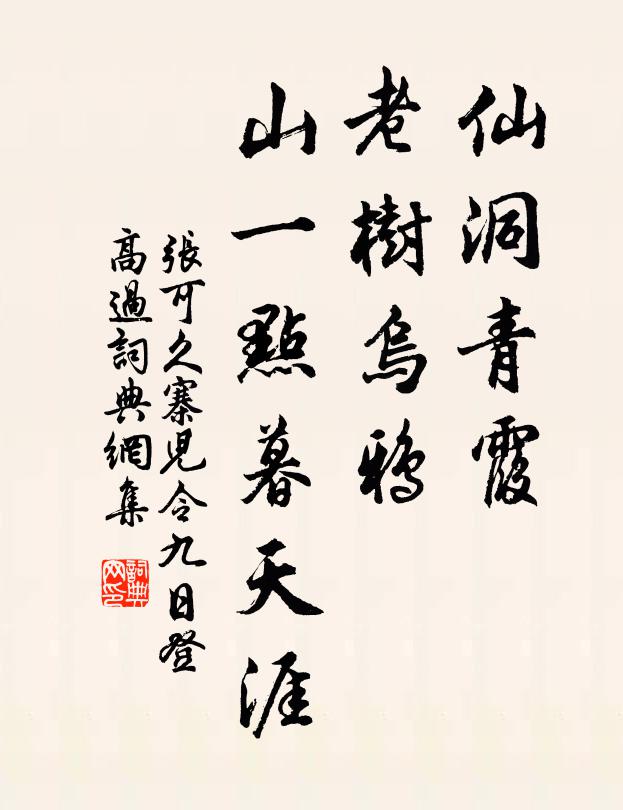 仙洞青霞
老樹烏鴉
山一點暮天涯
張可久寨兒令九日登
高過詞典網集
詞典
网印